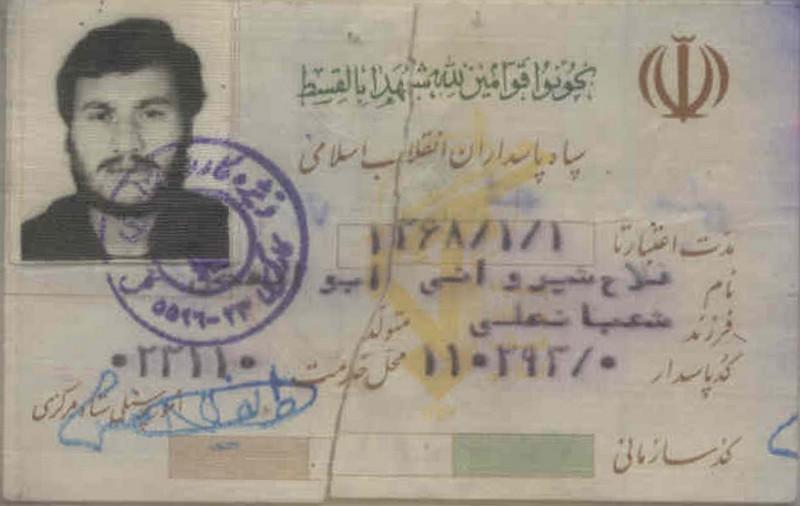 کونوا قوامین لله شهداء بالقسط
سپاه پاسداران انقلاب اسلامی
مدت اعتبار تا ۱۳۶۸/۱/۱
نام فلاح شیروانی ابو
فرزند شعبانعلی متولد
کد پاسدار ۱۱۰۲۹۲/۰ محل خدمت ۰۲۲۱۱۰
پرسنلی ستاد مرکزی
کد سازمانی
۵۵۲۶-۲۳